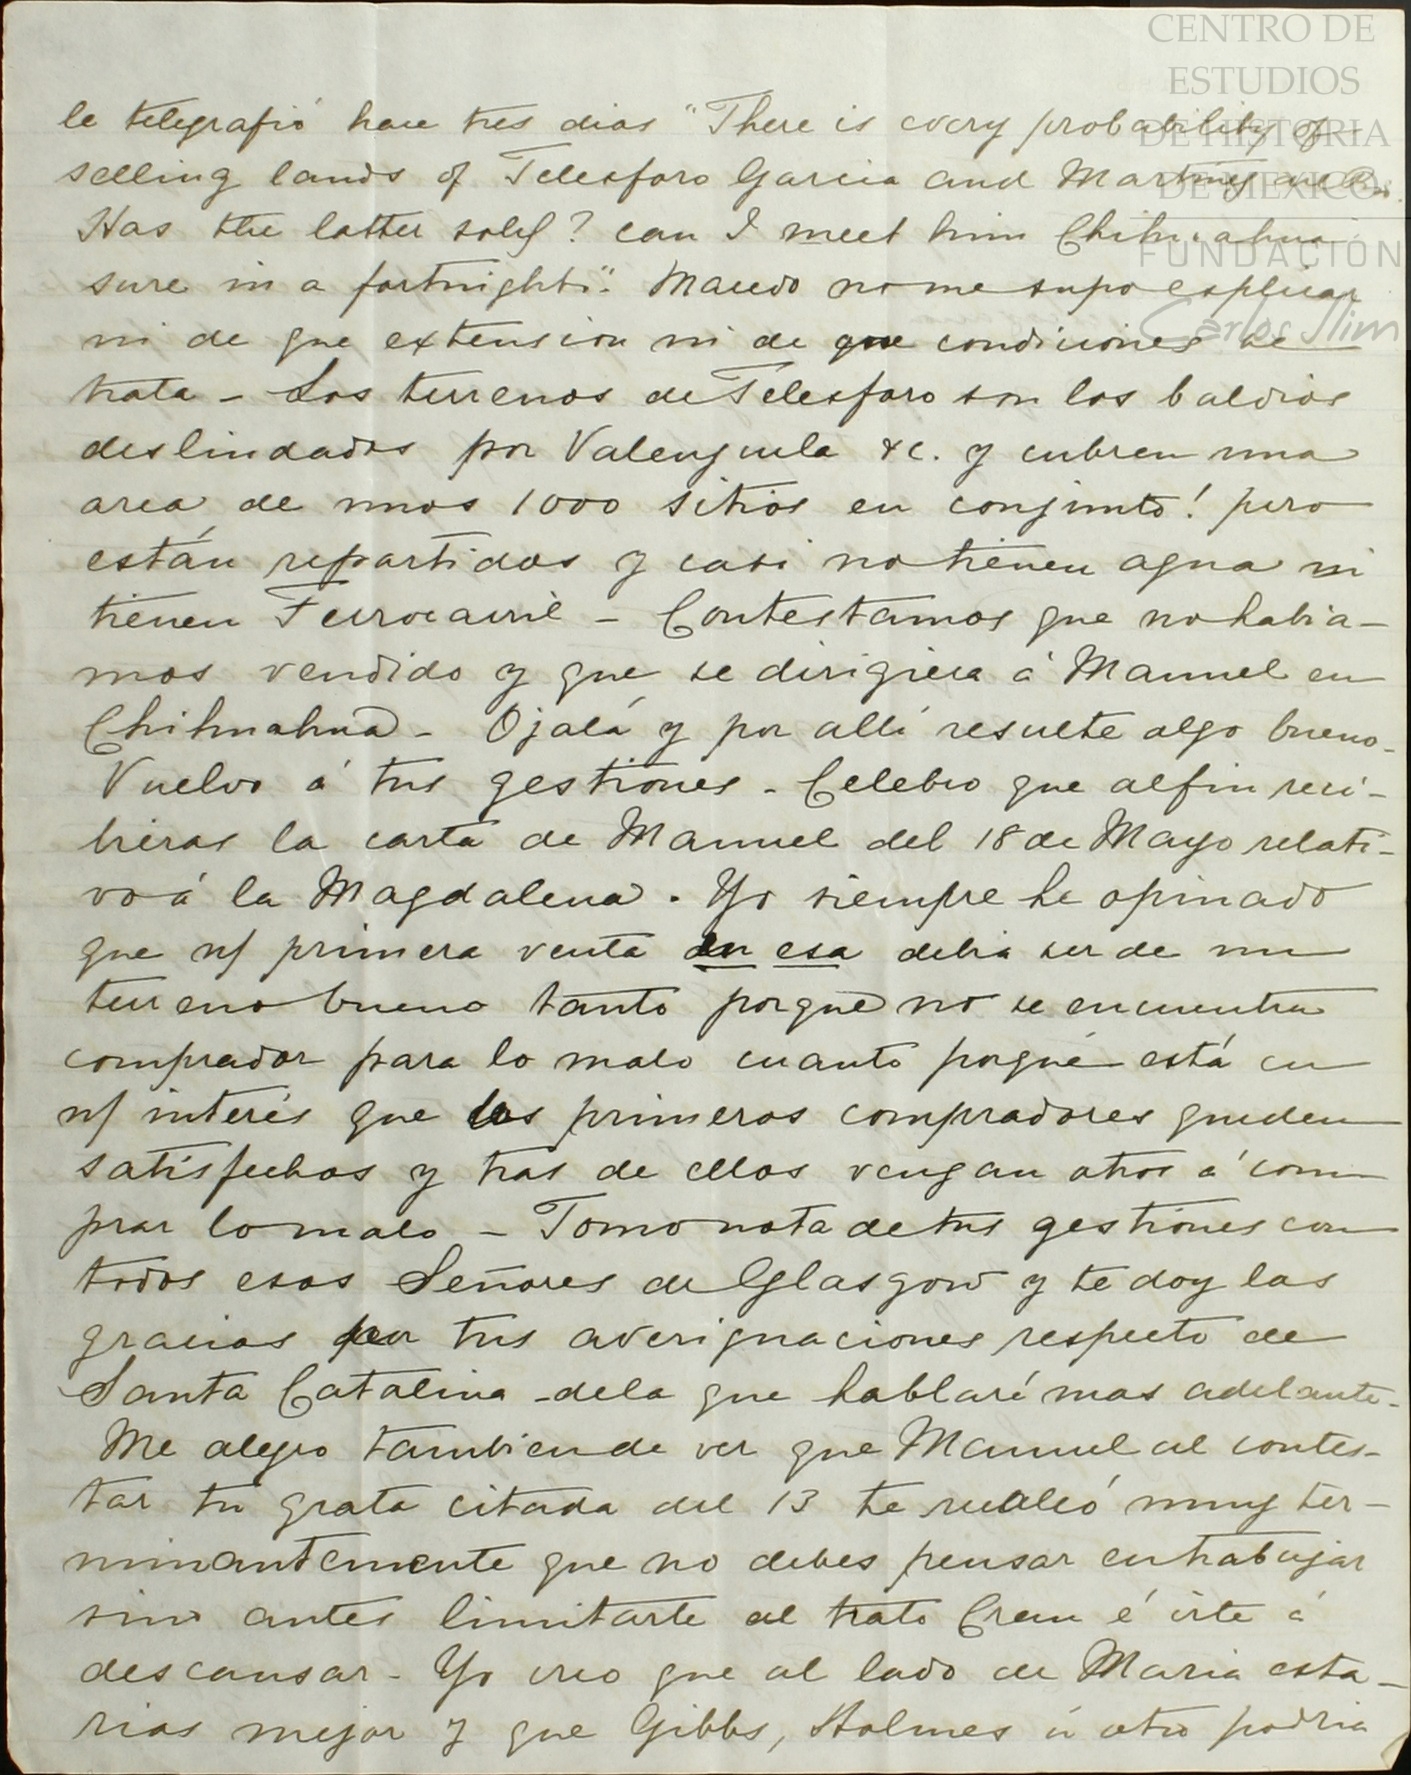 CENTRO DE
ESTUDIOS
DE HISTORIA
DE MEXICO
FUNDACIÓN
Carlos Slim
le telegrafió hace tres dias "There is every probability of
selling lands of Telesforo Garcia and Martinez del Rio.
Has the latter sold? can I meet him Chihuahua
sure in a fortnight". Macedo no me supo esplicar
ni de que extension ni de que condiciones se
trata - Los terrenos de Telesforo son los baldios
deslindados por Valenzuela &c. y cubren una
area de unos 1000 sitios en conjunto! pero
están repartidos y casi no tienen agua ni
tienen Ferrocarril - Contestamos que no habia-
mos vendido y que se dirigiera á Manuel en
Chihuahua - Ojalá y por allí resulte algo bueno.
Vuelvo á tus gestiones - Celebro que al fin reci-
bieras la carta de Manuel del 18 de Mayo relati-
vo á la Magdalena. Yo siempre he opinado
que n/ primera venta en esa debia ser de un
terreno bueno tanto porque no se encuentra
comprador para lo malo cuanto porque está en
n/ interés que los primeros compradores queden
satisfechos y tras de ellos vengan otros á com
prar lo malo - Tomo nota de tus gestiones con
todos esos Señores de Glasgow y te doy las
gracias por tus averiguaciones respecto de
Santa Catalina - de la que hablaré mas adelante.
Me alegro tambien de ver que Manuel al contes-
tar tu grata citada del 13 te recalcó muy ter-
minantemente que no debes pensar en trabajar
sino antes limitarte al trato é irte á
descansar - Yo creo que al lado de Maria esta-
rias mejor y que Gibbs, Holmes ú otro podria